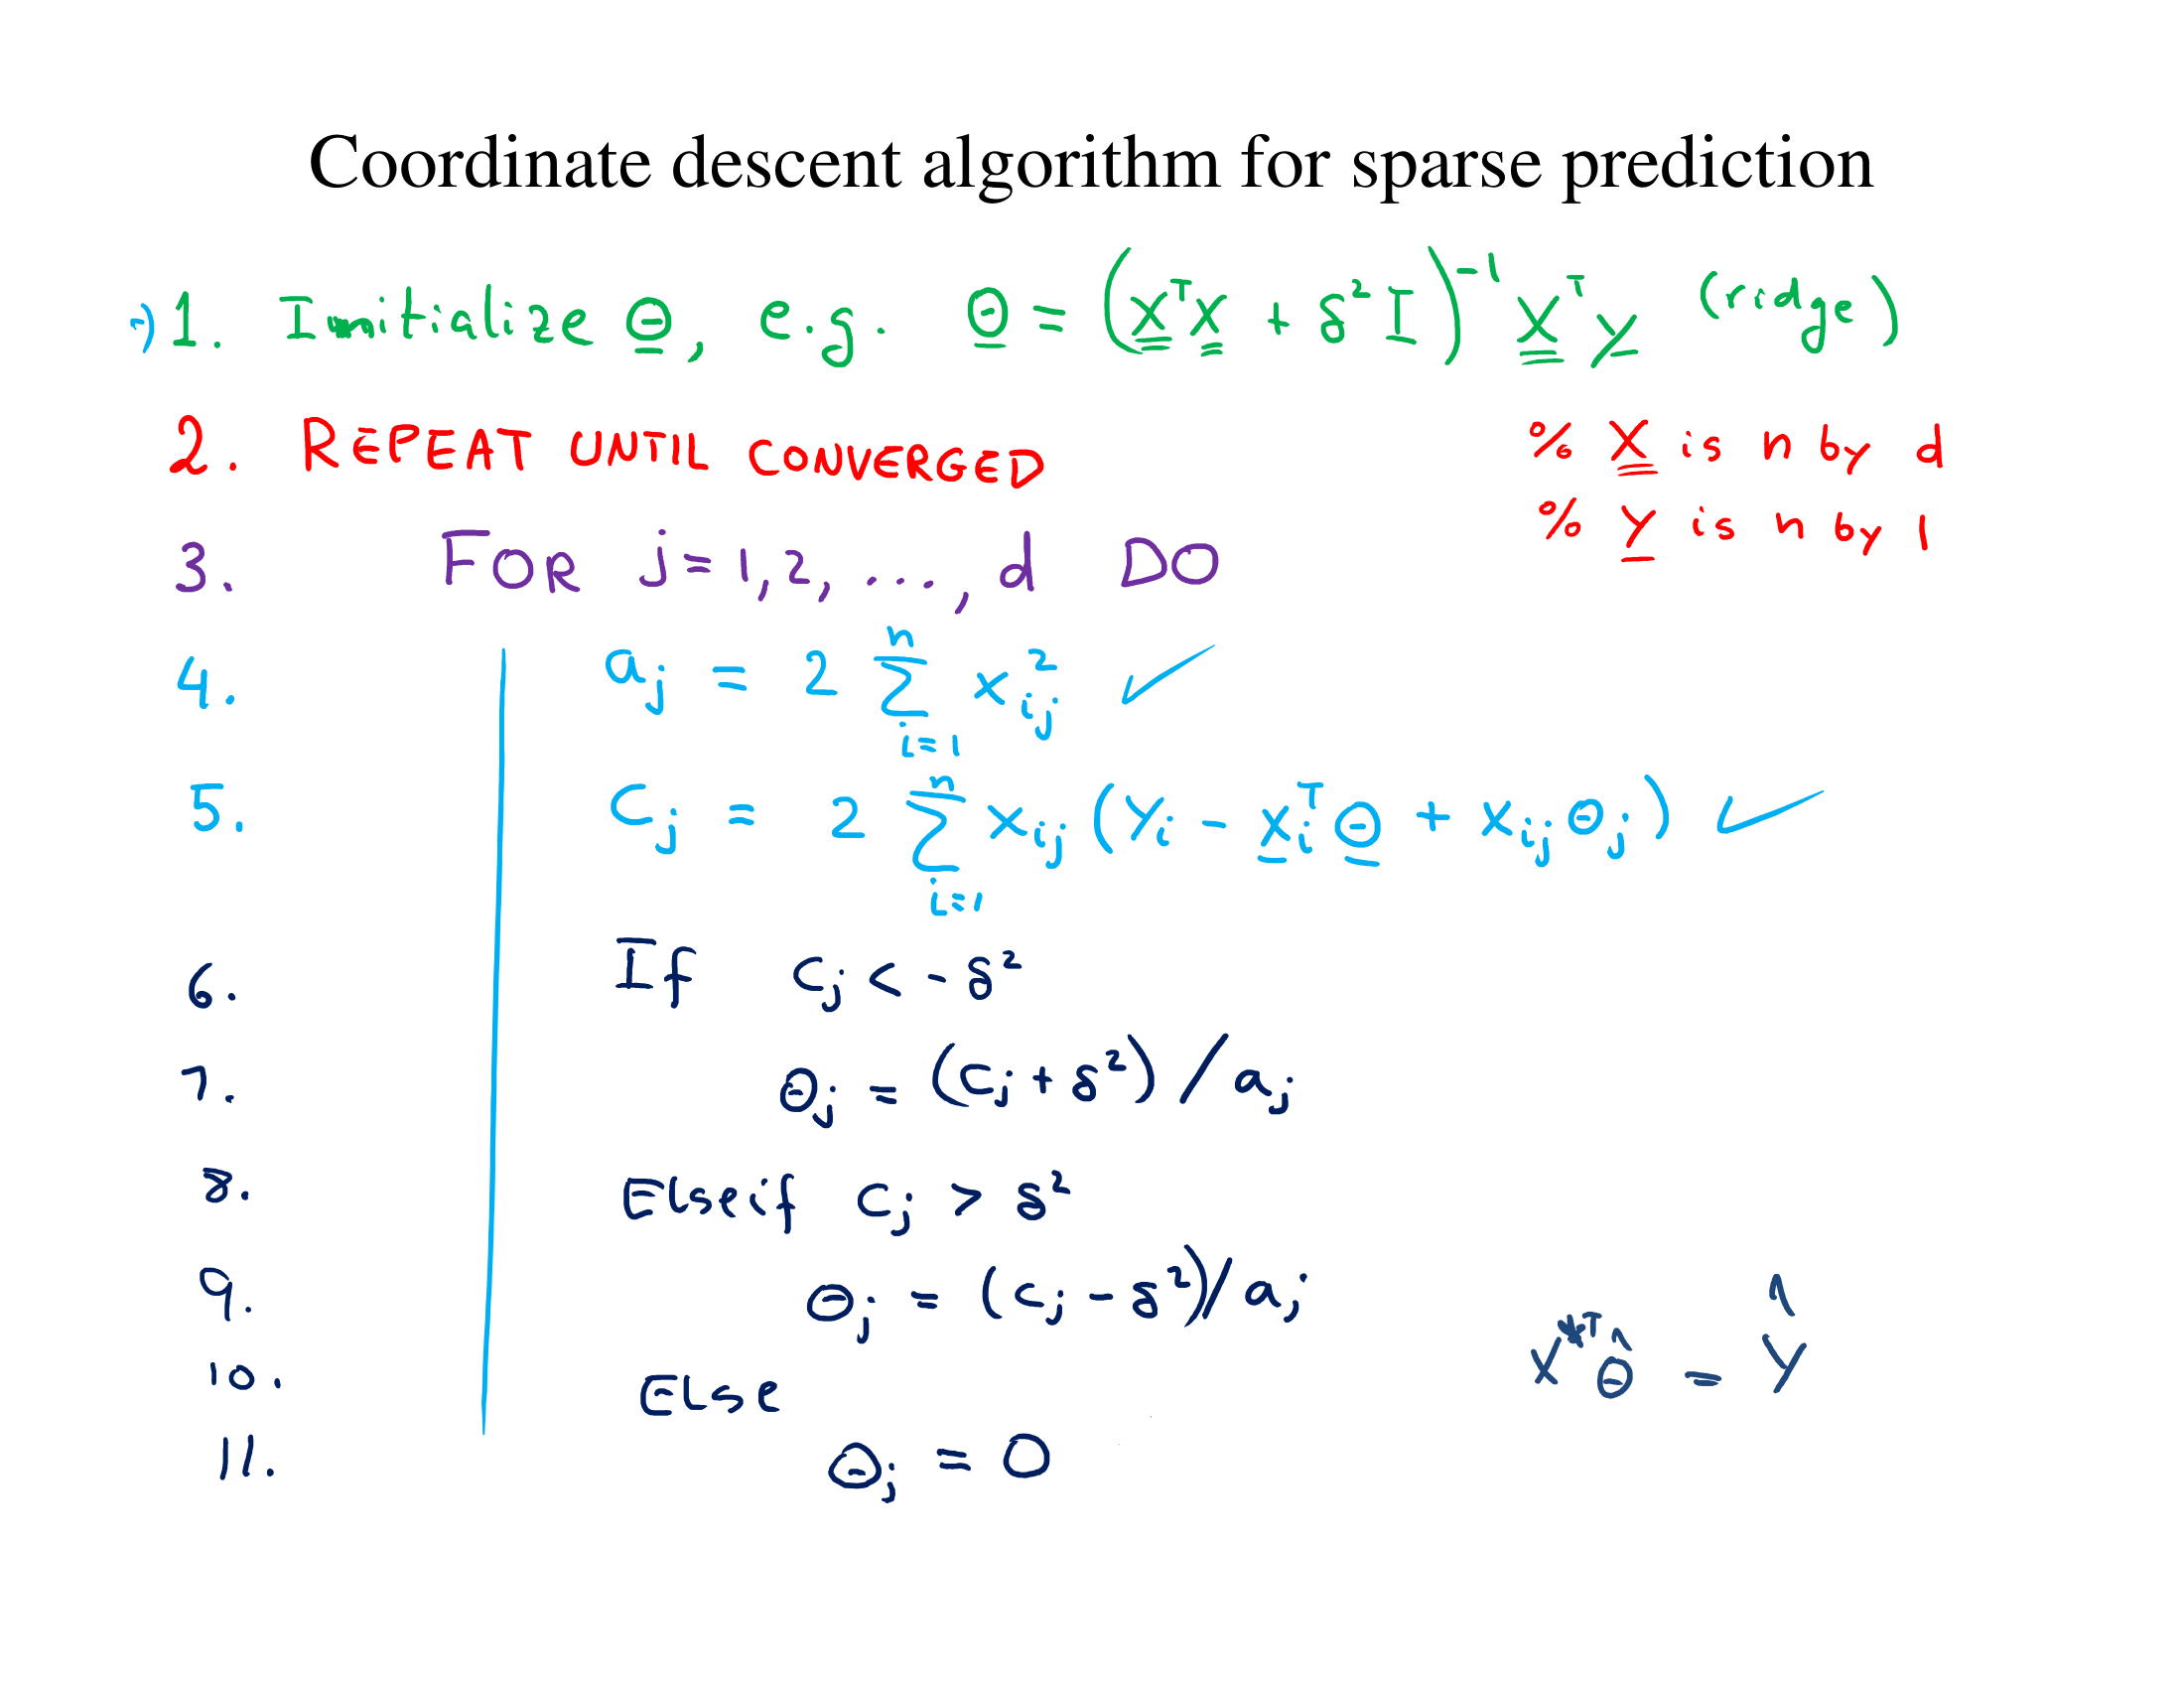 Coordinate descent algorithm for sparse prediction
1. Initialize θ, e.g. θ = (XᵀX + δ²I)⁻¹ Xᵀy (ridge)
2. REPEAT UNTIL CONVERGED % X is n by d
% Y is n by 1
3. FOR j=1,2,...,d DO
4. aj = 2 Σ_{i=1}^{n} x_{ij}² ✓
5. Cj = 2 Σ_{i=1}^{n} x_{ij} (Yi - xiᵀθ + x_{ij}θj) ✓
6. If Cj < -δ²
7. θj = (Cj + δ²) / aj
8. Elseif Cj > δ²
9. θj = (Cj - δ²) / aj
10. Else
X*ᵀ θ̂ = Ŷ
11. θj = 0